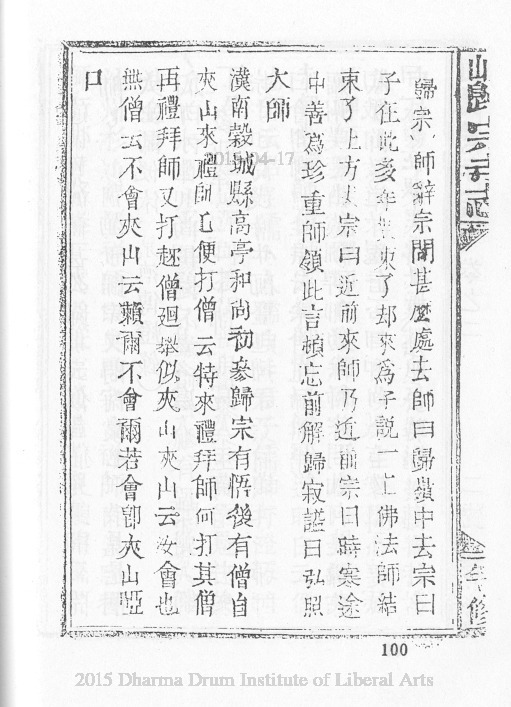 歸宗師辭宗問甚麼處去師曰歸嶺中去宗曰
子在此多年裝束了却來為子說一上佛法師結
束了上方丈宗曰近前來師乃近前宗曰時寒途
中善為珍重師領此言頓忘前解歸寂謚曰弘照
大師
漢南穀城縣高亭和尚初參歸宗有悟後有僧自
夾山來禮師便打僧云特來禮拜師何打其僧
再禮拜師又打趂僧廻舉似夾山夾山云汝會也
無僧云不會夾山云賴爾不會爾若會卽夾山啞
口
2015-04-17
100
2015 Dharma Drum Institute of Liberal Arts